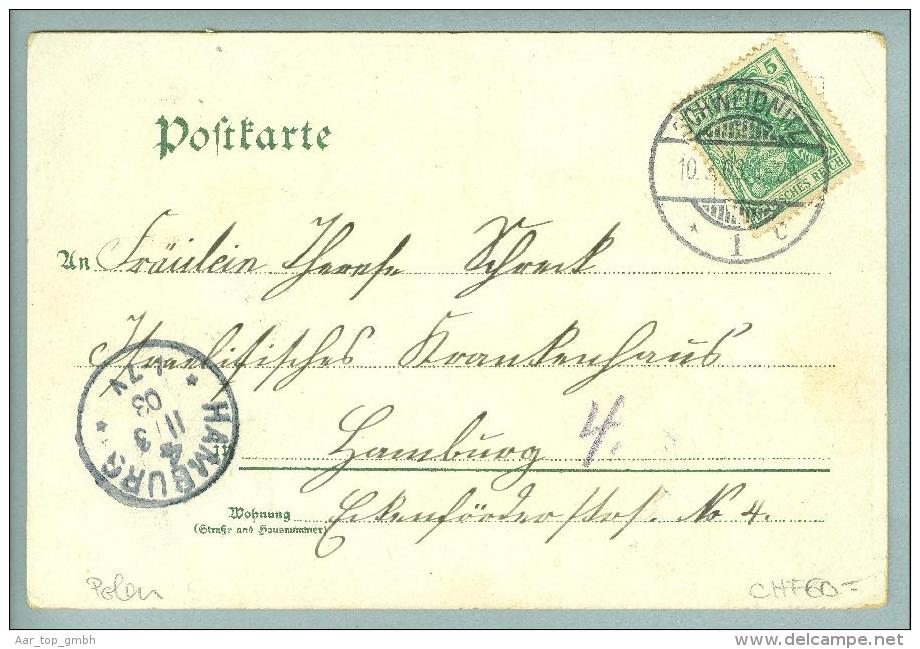 5
SCHWEIDNITZ
DEUTSCHES REICH
* 1 c
Postkarte
An Fräulein Therese Schreck
Israelitisches Krankenhaus
HAMBURG
4
11/3
03
in Hamburg
4.
Wohnung
(Straße und Hausnummer)
Eckenförder Str. No 4.
Polen
CHF 60.-
Aar_top_gmbh
www.delcampe.net